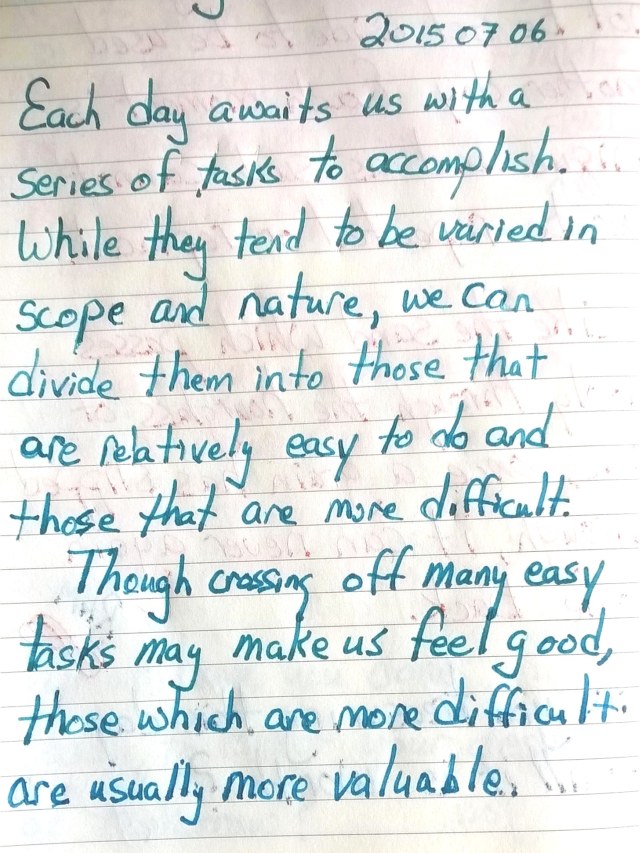 2015 07 06
Each day awaits us with a
series of tasks to accomplish.
While they tend to be varied in
scope and nature, we can
divide them into those that
are relatively easy to do and
those that are more difficult.
Though crossing off many easy
tasks may make us feel good,
those which are more difficult
are usually more valuable.